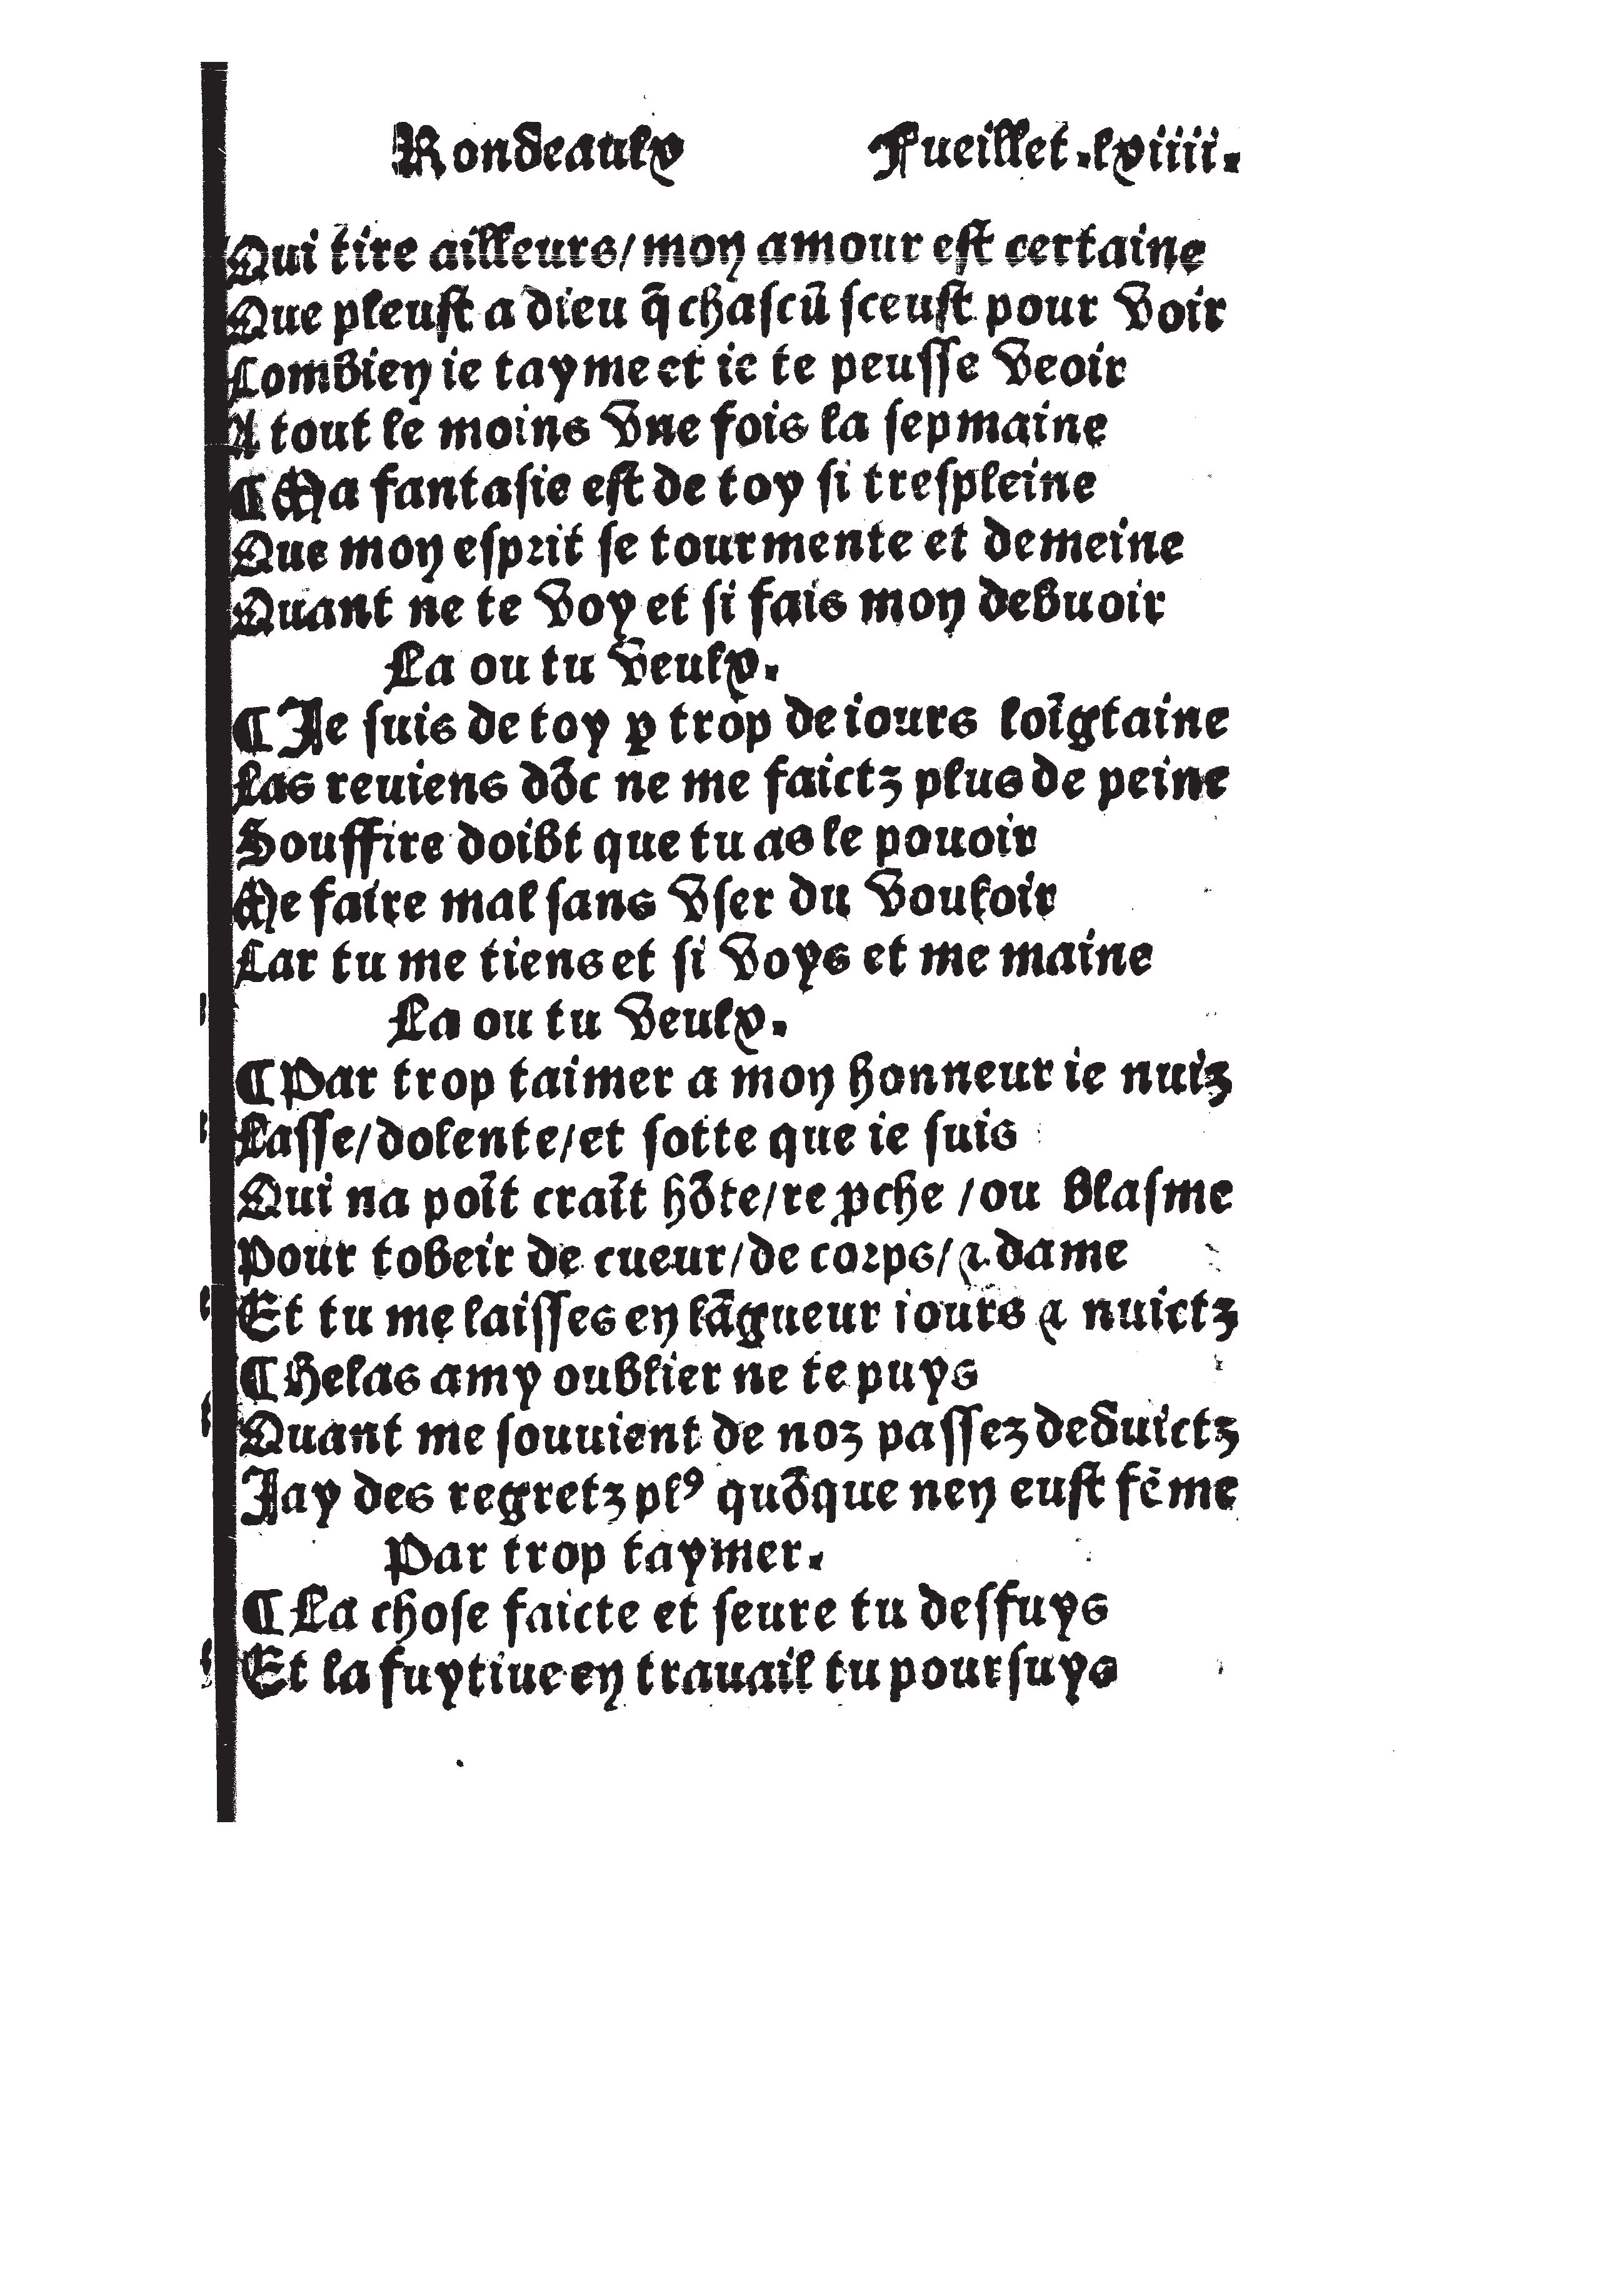 Rondeaulx Fueillet .lxiiii.
Qui tire ailleurs/mon amour est certaine
Que pleust a dieu q̃ chascũ sceust pour voir
Combien ie tayme et ie te peusse veoir
A tout le moins vne fois la sepmaine
¶ Ma fantasie est de toy si trespleine
Que mon esprit se tourmente et demeine
Quant ne te voy et si fais mon debuoir
La ou tu veulx.
¶ Je suis de toy ꝑ trop de iours loĩgtaine
Las reuiens dõc ne me faictz plus de peine
Souffire doibt que tu as le pouoir
Me faire mal sans vser du vouloir
Car tu me tiens et si voys et me maine
La ou tu veulx.
¶ Par trop taimer a mon honneur ie nuiz
Lasse/dolente/et sotte que ie suis
Qui na poĩt craĩt hõte/reꝓche /ou blasme
Pour tobeir de cueur/de corps/⁊ dame
Et tu me laisses en lãgueur iours ⁊ nuictz
¶ Helas amy oublier ne te puys
Quant me souuient de noz passez deduictz
Jay des regretz plꝰ quõque nen eust fẽme
Par trop taymer.
¶ La chose faicte et seure tu desfuys
Et la fuytiue en trauail tu poursuys